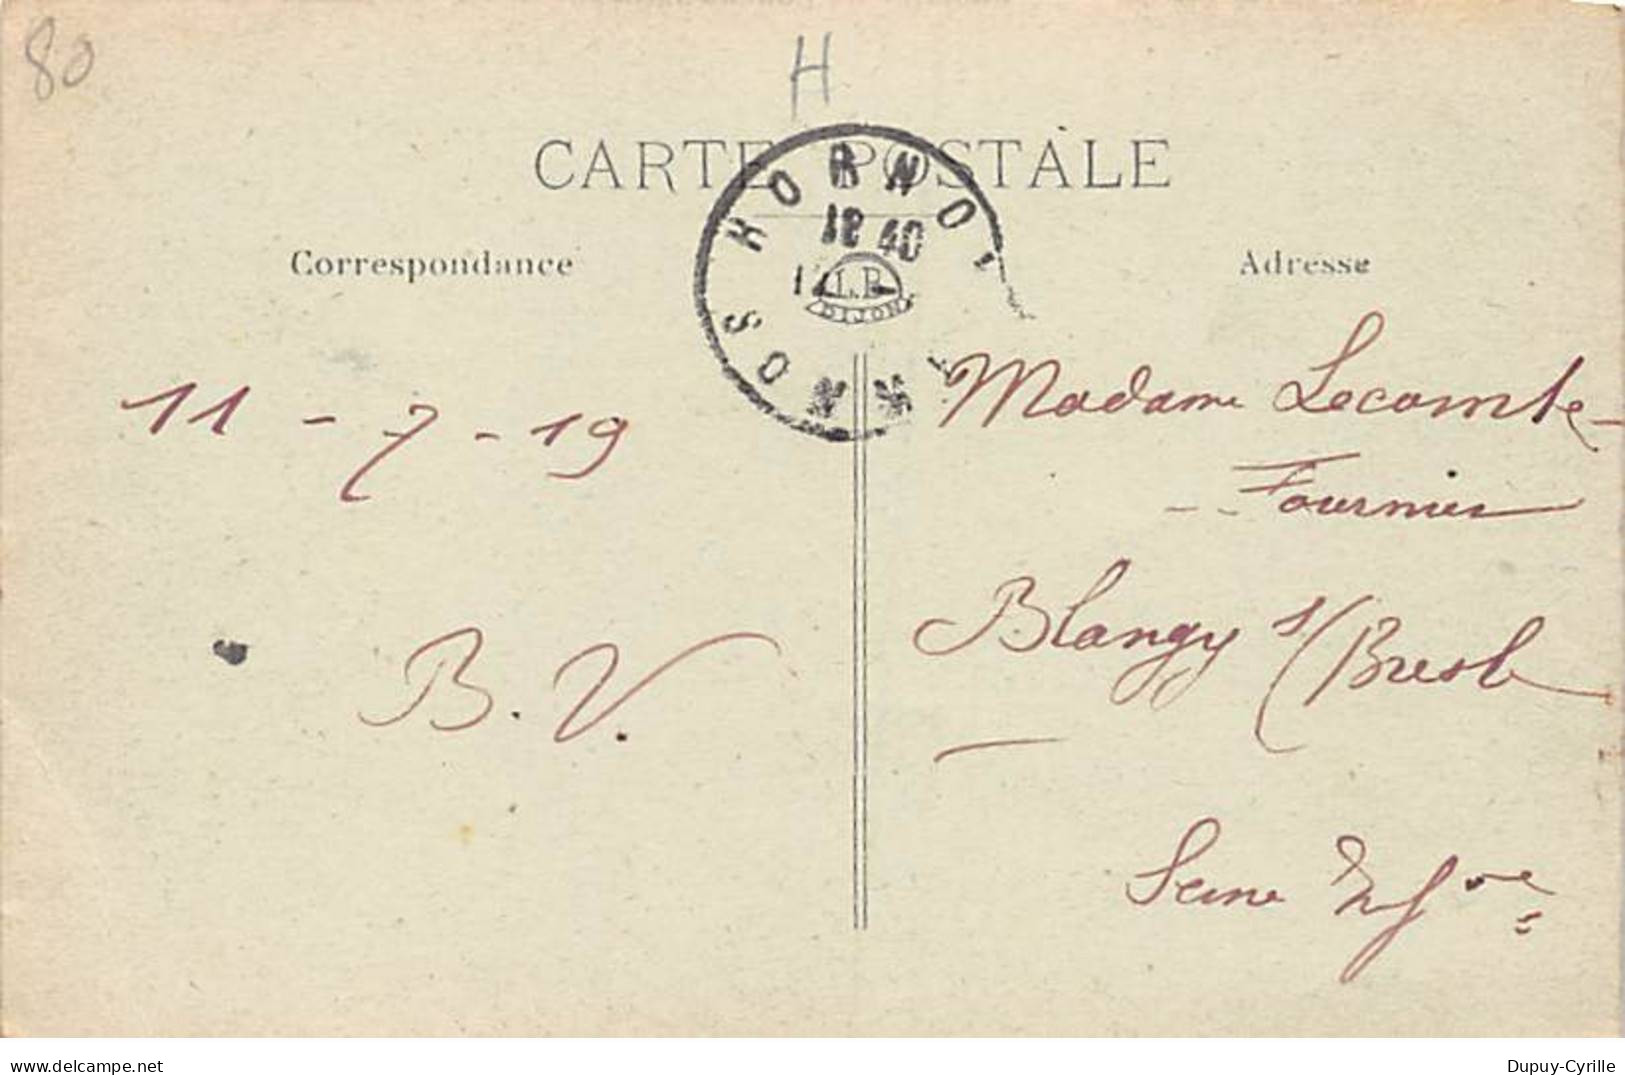 80
H
CARTE POSTALE
HORNOY
SOMME
18 40
12
L.B
DIJON
Correspondance
Adresse
11 - 7 - 19
B.V.
Madame Lecomte-
Fournier
Blangy s/Bresle
Seine Infre
delcampe.net
Dupuy-Cyrille